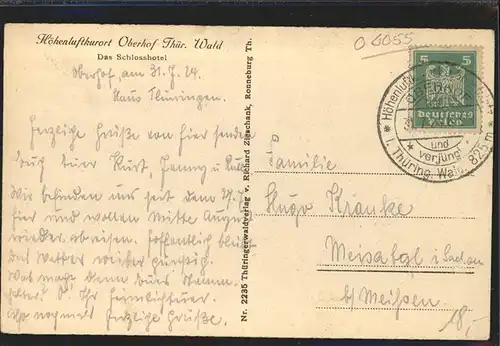 Höhenluftkurort Oberhof Thür. Wald
Das Schlosshotel
Oberhof, am 31.7.24.
Haus Thüringen.
Herzliche Grüße von hier senden
Euch Euer Kurt, Jenny u.
Wir befinden uns seit dem 27.7.
hier und wollen Mitte August
wieder abreisen. Hoffentlich bleibt
das Wetter weiter günstig.
Was macht denn Euer Stamm-
halter?
nochmals herzliche Grüße.
Nr. 2235 Thüringerwaldverlag v. Richard Zieschank, Ronneburg Th.
06055
5 5
Deutsches Reich
Höhenluftkurort
OBERHOF
und
verjüngt
i. Thüring. Wald 825 m
Familie
Hugo Kranke
Meisatal i Sachsen
b/ Meißen
18,-